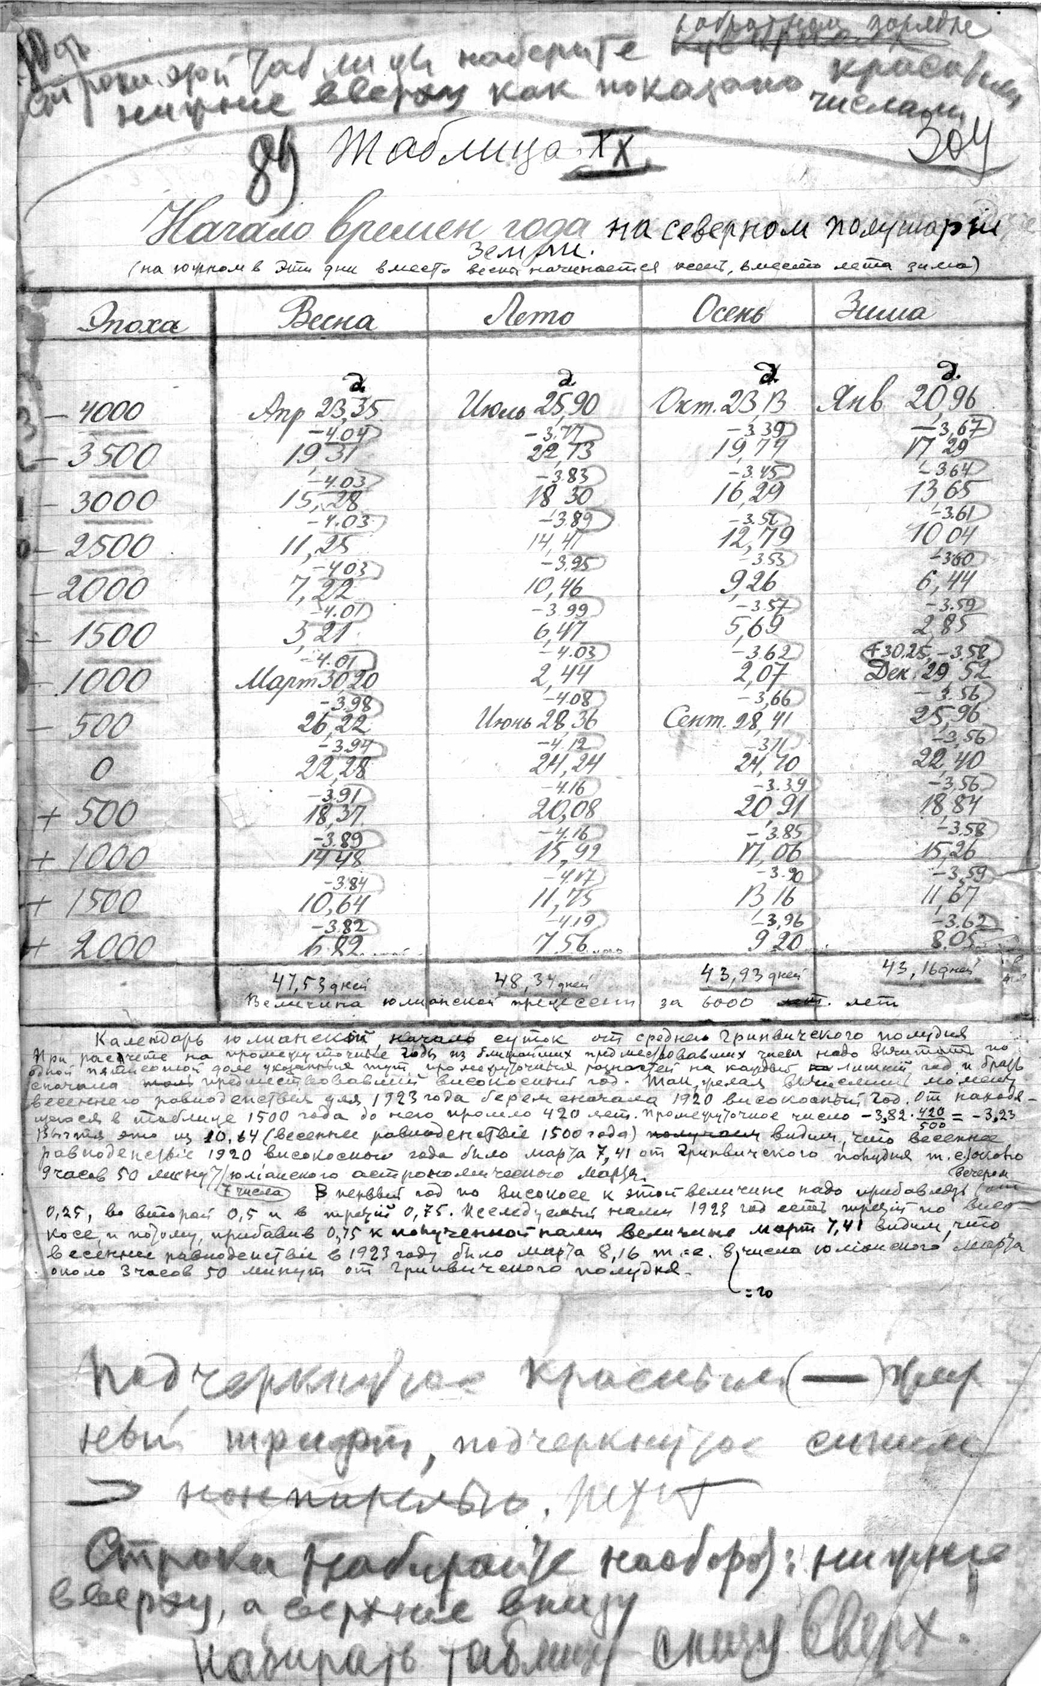 в обратном порядке
строки этой таблицы наберите
нижние вверху как показано красными
числами
89 Таблица XX. 304
Начало времен года на северном полушарии
Земли.
(на южном в эти дни вместо весны начинается осень, вместо лета зима)
Эпоха Весна Лето Осень Зима
d. d. d. d.
- 4000 Апр 23,35 Июль 25,90 Окт. 23,13 Янв 20,96
-4.04 -3,77 -3.39 -3,67
- 3500 19 31 22,73 19,74 17 29
-4.03 -3.83 -3.45 -3.64
- 3000 15,28 18 30 16,29 13 65
-4.03 -3.89 -3.50 -3.61
- 2500 11,25 14,41 12,79 10 04
-4.03 -3.95 -3.53 -3.60
- 2000 7,22 10,46 9,26 6,44
-4.01 -3.99 -3.57 -3.59
- 1500 3,21 6,47 5,69 2,85
-4.01 -4.03 -3.62 +30.25, -3.58
- 1000 Март 30,20 2,44 2,07 Дек. 29,52
-3.98 -4.08 -3,66 -3.56
- 500 26,22 Июнь 28,36 Сент. 28,41 25,96
-3.94 -4,12 -3.71 -3,56
0 22,28 24,24 24,70 22 40
-3.91 -4.16 -3.39 -3,56
+ 500 18,37 20,08 20,91 18,84
-3.89 -4.16 -3.85 -3.58
+ 1000 14 48 15,92 17,06 15,26
-3.84 -4.17 -3.90 -3,59
+ 1500 10,64 11,75 13 16 11,67
-3.82 -4.19 -3,96 -3.62
+ 2000 6.82 7.56 9 20 8,05
47,53 дней 48,34 дней 43,93 дней 43,16 дней
Величина юлианской прецессии за 6000 лет
Календарь юлианский начало суток от среднего Гринвичского полудня
При расчете на промежуточные годы из ближайших предшествовавших чисел надо вычитать по
одной пятисотой доле указанных тут промежуточных разностей на каждый лишний год и брать
сначала предшествовавший високосный год. Так, желая вычислить момент
весеннего равноденствия для 1923 года берем сначала 1920 високосный год. От находя-
щегося в таблице 1500 года до него прошло 420 лет. Промежуточное число -3,82 · 420/500 = -3,23
Вычтя это из 10,64 (весеннее равноденствие 1500 года) получаем видим, что весеннее
равноденствие 1920 високосного года было марта 7,41 от Гринвичского полудня т.е. около
9 часов 50 минут юлианского астрономического марта. вечером
7 числа В первый год по високосе к этой величине надо прибавлять
0,25, во второй 0,5 и в третий 0,75. Исследуемый нами 1923 год есть третий по висо-
косе, и потому, прибавив 0,75 к полученной нами величине март 7,41 видим, что
весеннее равноденствие в 1923 году было марта 8,16 т.е. 8 числа юлианского марта
около 3 часов 50 минут от Гринвичского полудня.
=го
Подчеркнутое красным (—) жир
ный шрифт, подчеркнутое синим
нонпарелью.
Строки набирайте наоборот: нижние
вверху, а верхние внизу
Набирать таблицу снизу вверх.